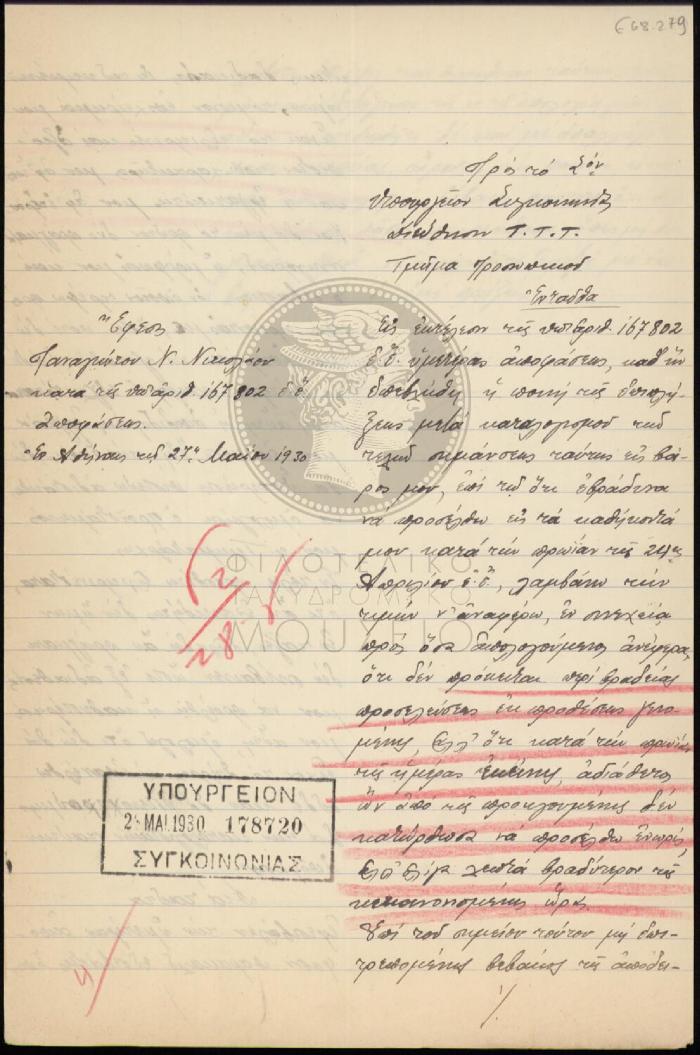 668.279
Πρός τό Σόν
Υπουργείον Συγκοινωνίας
Διεύθυνσιν Τ.Τ.Τ.
Τμήμα Προσωπικού
Ἐνταῦθα
Ἔφεσις
Παναγιώτου Ν. Νικολάου
κατά τῆς ὑπ' ἀριθ. 167802 ἐ.ἔ.
ἀποφάσεως.
Ἐν Ἀθήναις τῇ 27ῃ Μαΐου 1930
Εἰς ἐκτέλεσιν τῆς ὑπ' ἀριθ. 167802
ἐ.ἔ. ὑμετέρας ἀποφάσεως, καθ' ἥν
ἐπεβλήθη ἡ ποινή τῆς ἐπιπλή-
ξεως μετά καταλογισμοῦ τοῦ
τέλους σημάνσεως ταύτης εἰς βά-
ρος μου, ἐπί τῷ ὅτι ἐβράδυνα
νά προσέλθω εἰς τά καθήκοντά
μου κατά τήν πρωΐαν τῆς 24ης
Ἀπριλίου ἐ.ἔ., λαμβάνω τήν
τιμήν ν' ἀναφέρω, ἐν συνεχείᾳ
πρός ὅσα ἀπολογούμενος ἀνέφερα,
ὅτι δέν πρόκειται περί βραδείας
προσελεύσεως ἐκ προθέσεως γενο-
μένης, ἀλλ' ὅτι κατά τήν πρωΐαν
τῆς ἡμέρας ἐκείνης, ἀδιάθετος
ὤν ἀπό τῆς προηγουμένης δέν
κατώρθωσα νά προσέλθω ἐνωρίς,
ἀλλ' ὀλίγα λεπτά βραδύτερον τῆς
κεκανονισμένης ὥρας.
Ἐπί τοῦ σημείου τούτου μή ἐπι-
τρεπομένης βεβαίως τῆς ἀποδεί-
./.
28-5
ΥΠΟΥΡΓΕΙΟΝ
ΜΑΙ.1930 178720
ΣΥΓΚΟΙΝΩΝΙΑΣ
ΦΙΛΟΤΕΛΙΚΟ
ΤΑΧΥΔΡΟΜΙΚΟ
ΜΟΥΣΕΙΟ